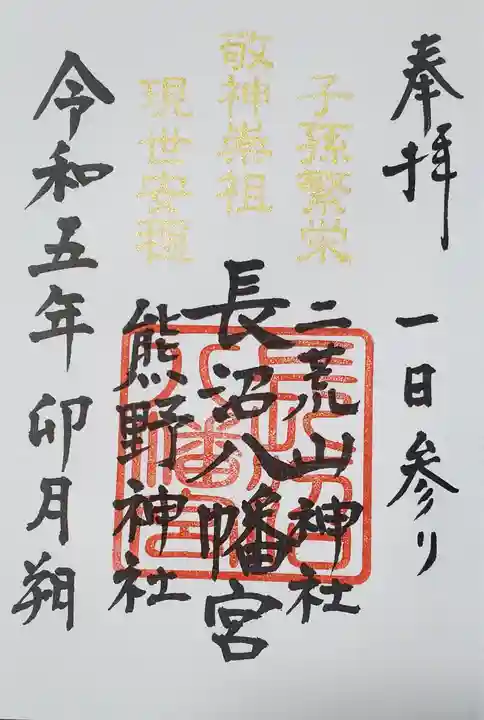 奉拝 一日参り
子孫繁栄
敬神崇祖
現世安穏
二荒山神社
長沼八幡宮
熊野神社
令和五年 卯月朔
長沼八幡宮